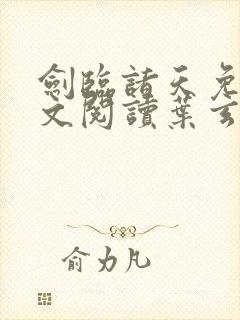 劍臨諸天免
文閱讀葉玄
俞力凡